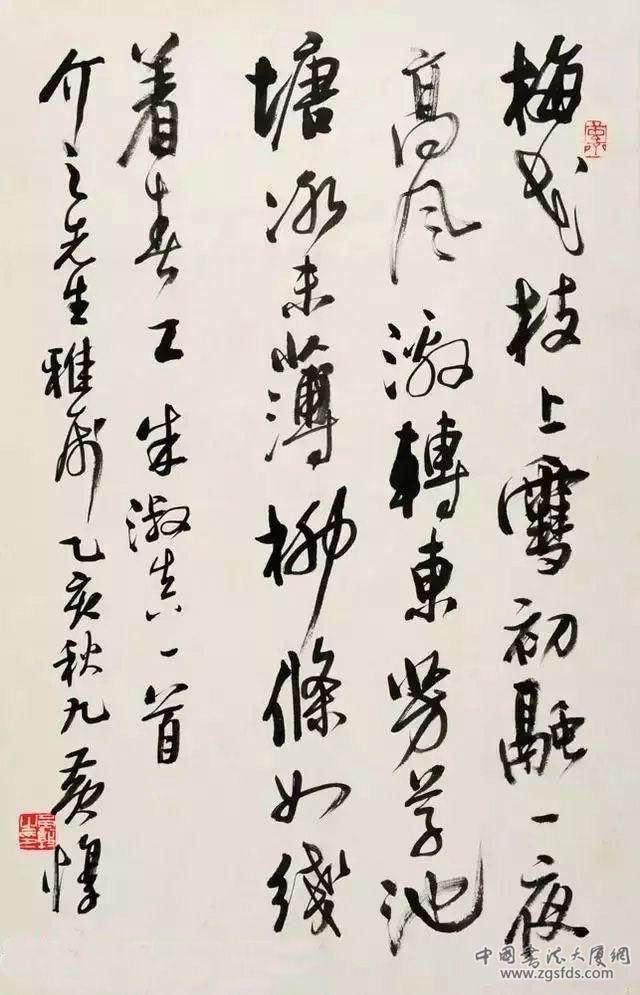 梅花枝上雪初融一夜
高風激轉東芳草池
塘冰未薄柳條如綫
着春工朱淑真一首
介之先生雅屬乙亥秋九黄惇
中國書法大厦網
www.zgsfds.com